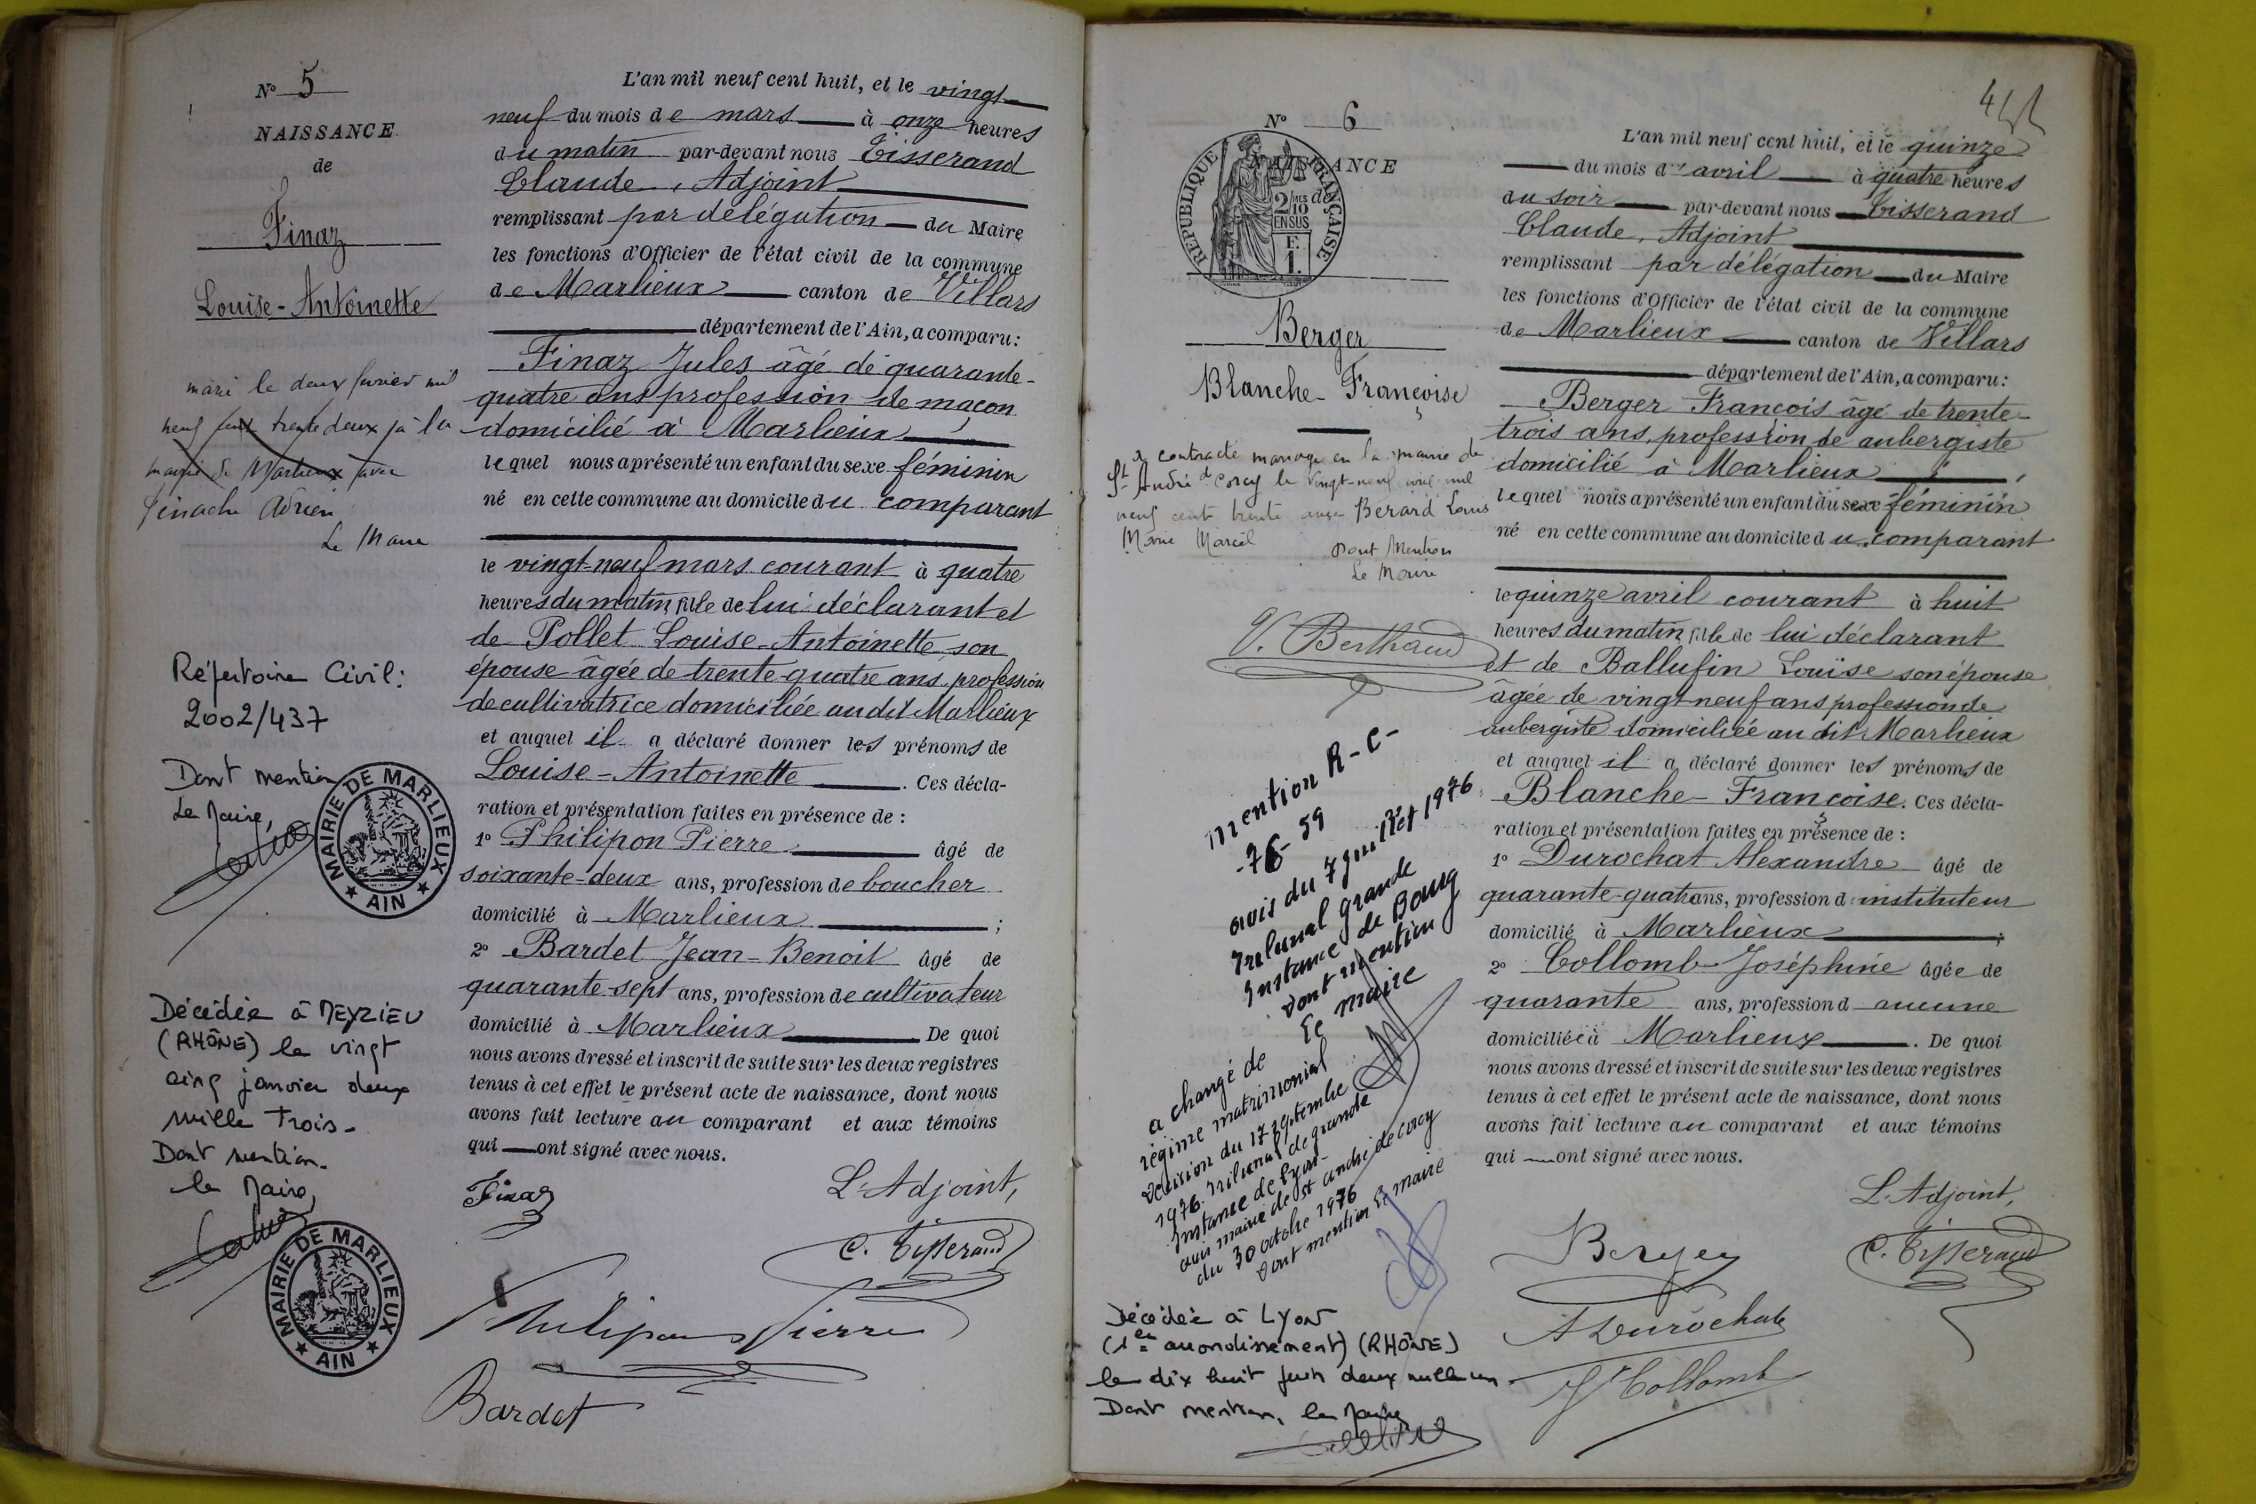 N° 5
NAISSANCE
de
Finaz
Louise-Antoinette
marié le deux février mil
neuf cent trente deux à la
mairie de Marlieux avec
Adrien
Le Maire
Répertoire Civil:
2002/437
Dont mention
Le Maire,
MAIRIE DE MARLIEUX
AIN
Décédée à MEYZIEU
(RHÔNE) le vingt
cinq janvier deux
mille trois-
Dont mention-
le Maire,
MAIRIE DE MARLIEUX
AIN
L'an mil neuf cent huit, et le vingt
neuf du mois de mars à onze heures
du matin par-devant nous Tisserand
Claude, Adjoint
remplissant par délégation du Maire
les fonctions d'Officier de l'état civil de la commune
de Marlieux canton de Villars
département de l'Ain, a comparu:
Finaz Jules âgé de quarante-
quatre ans profession de maçon
domicilié à Marlieux,
lequel nous a présenté un enfant du sexe féminin
né en cette commune au domicile du comparant
le vingt-neuf mars courant à quatre
heures du matin, fille de lui déclarant et
de Pollet Louise-Antoinette son
épouse âgée de trente-quatre ans, profession
de cultivatrice domiciliée au dit Marlieux
et auquel il a déclaré donner les prénoms de
Louise-Antoinette. Ces décla-
ration et présentation faites en présence de :
1° Philipon Pierre âgé de
soixante-deux ans, profession de boucher
domicilié à Marlieux ;
2° Bardet Jean-Benoit âgé de
quarante-sept ans, profession de cultivateur
domicilié à Marlieux De quoi
nous avons dressé et inscrit de suite sur les deux registres
tenus à cet effet le présent acte de naissance, dont nous
avons fait lecture au comparant et aux témoins
qui ont signé avec nous.
Finaz
L'Adjoint,
C. Tisserand
Philipon Pierre
Bardet
N° 6
NAISSANCE
de
REPUBLIQUE FRANÇAISE
2/10 MES
EN SUS
F.
1.
Berger
Blanche-Françoise
a contracté mariage en la mairie de
St André de Corcy le vingt-neuf mil
neuf cent trente Berard Louis
Marie Marcel
Dont Mention
Le Maire
V. Berthaud
mention R-C-
76-59
avis du 7 juillet 1976
Tribunal grande
Instance de Bourg
dont mention
Le maire
a changé de
régime matrimonial
Décision du 17 septembre
1976 Tribunal de grande
Instance de Lyon-
avis mairie de St andré de corcy
du 30 octobre 1976
dont mention le maire
Décédée à LYON
(1er arrondissement) (RHÔNE)
le dix huit juin deux mille un
Dont mention, le Maire
L'an mil neuf cent huit, et le quinze
du mois d'avril à quatre heures
du soir par-devant nous Tisserand
Claude, Adjoint
remplissant par délégation du Maire
les fonctions d'Officier de l'état civil de la commune
de Marlieux canton de Villars
département de l'Ain, a comparu:
Berger François âgé de trente-
trois ans, profession de aubergiste
domicilié à Marlieux,
lequel nous a présenté un enfant du sexe féminin
né en cette commune au domicile du comparant
le quinze avril courant à huit
heures du matin, fille de lui déclarant
et de Ballufin Louise son épouse
âgée de vingt-neuf ans profession de
aubergiste domiciliée au dit Marlieux
et auquel il a déclaré donner les prénoms de
Blanche-Françoise. Ces décla-
ration et présentation faites en présence de :
1° Durochat Alexandre âgé de
quarante-quatre ans, profession d'instituteur
domicilié à Marlieux ;
2° Collomb Joséphine âgée de
quarante ans, profession d aucune
domiciliée à Marlieux. De quoi
nous avons dressé et inscrit de suite sur les deux registres
tenus à cet effet le présent acte de naissance, dont nous
avons fait lecture au comparant et aux témoins
qui ont signé avec nous.
L'Adjoint,
Berger
C. Tisserand
A Durochat
J Collomb